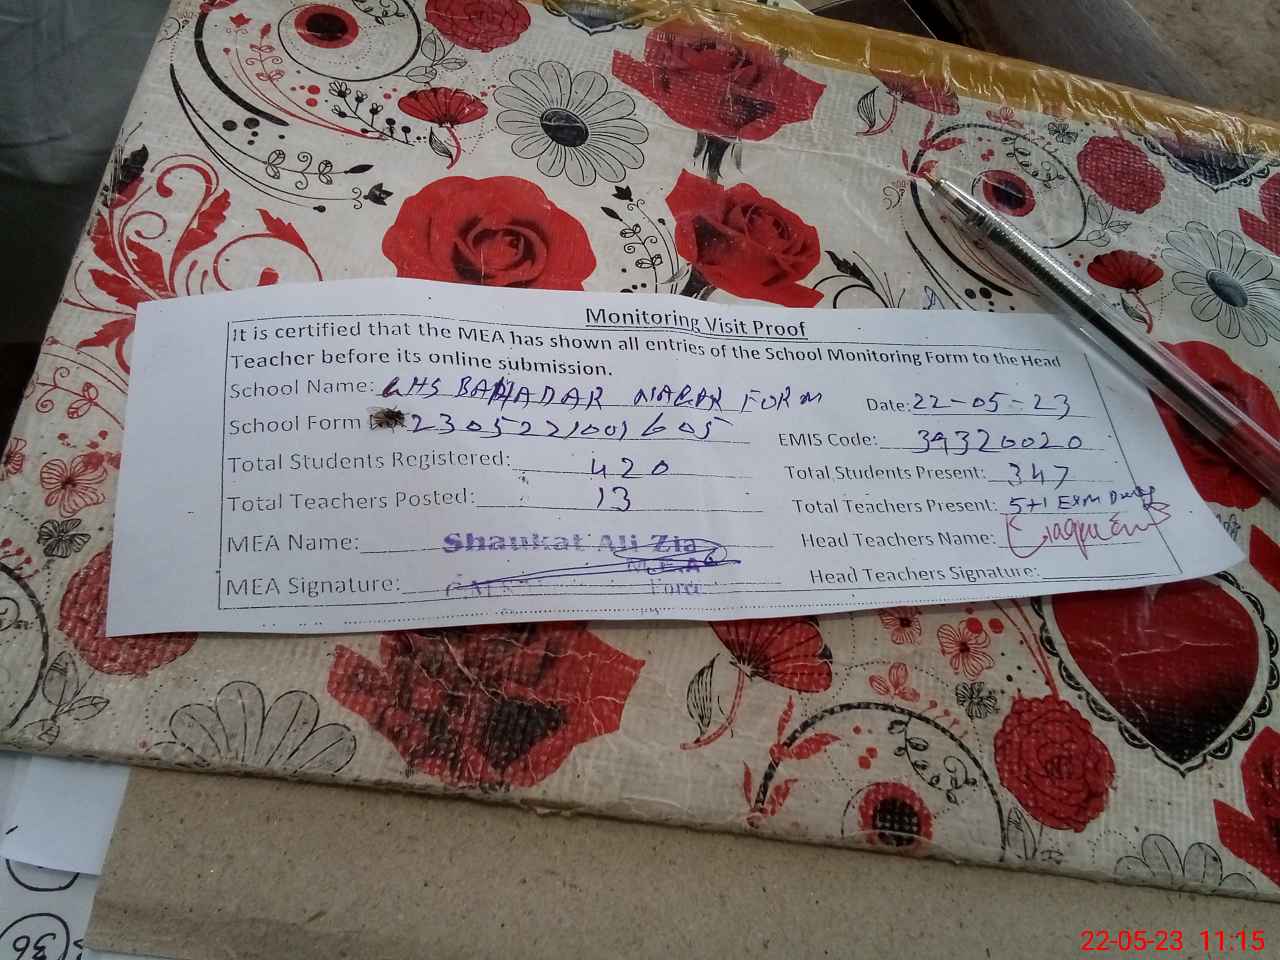 Monitoring Visit Proof
It is certified that the MEA has shown all entries of the School Monitoring Form to the Head
Teacher before its online submission.
School Name: GHS BAHADAR NAGAR FORM Date: 22-05-23
School Form 2305221001605 EMIS Code: 39320020
Total Students Registered: 420 Total Students Present: 347
Total Teachers Posted: 13 Total Teachers Present: 5+1 EXM Duty
MEA Name: Shaukat Ali Zia Head Teachers Name:
M.E.A
MEA Signature: Force Head Teachers Signature:
36
22-05-23 11:15